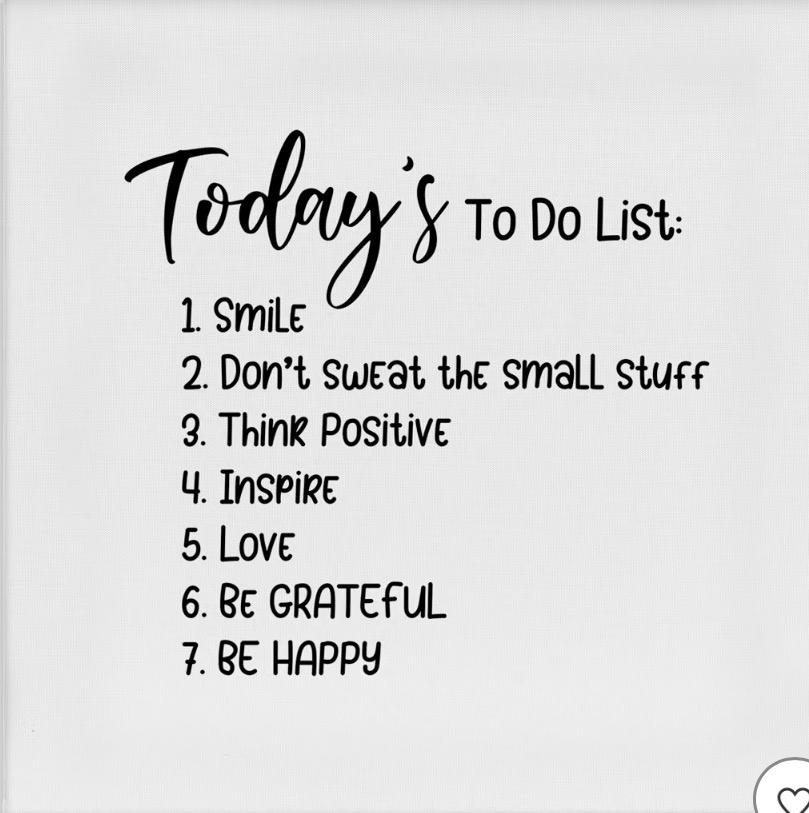 Today's To Do List:
1. Smile
2. Don't sweat the small stuff
3. Think Positive
4. Inspire
5. Love
6. BE GRATEFUL
7. BE HAPPY